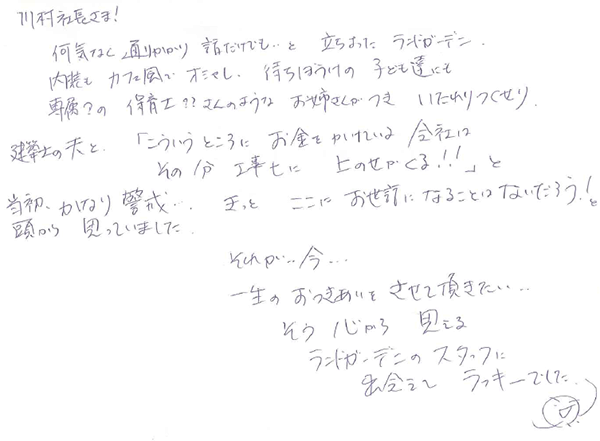 川村社長さま!
何気なく通りかかり 話だけでも…と 立ちよった ランドガーデン.
内装も カフェ風で オシャレ. 待ちぼうけの 子ども達にも
専属?の 保育士??さんのような お姉さんがつき いたれりつくせり.
建築士の夫と、「こういうところに お金をかけている 会社は
その分 工事費に 上のせがくる!!!」と
当初、かなり 警戒… きっと ここに お世話になることはないだろう!と
頭から 思っていました.
それが… 今…
一生の おつきあいを させて頂きたい…
そう 心から 思える
ランドガーデンの スタッフに
出会えて ラッキーでした.